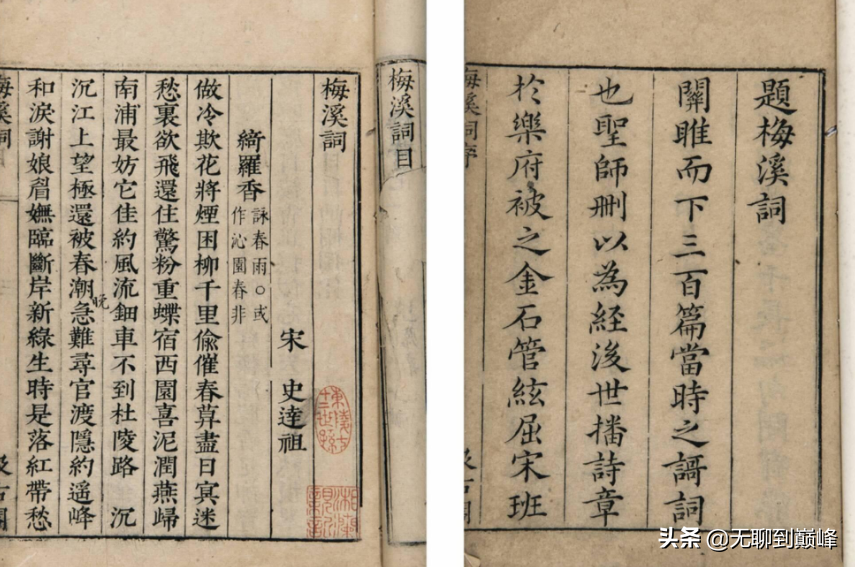 題梅溪詞
關雎而下三百篇當時之謌詞
也聖師刪以為経後世播詩章
扵樂府被之金石管絃屈宋班
梅溪詞目
梅溪詞
宋 史達祖
綺羅香
詠春雨○或
作沁園春非
做冷欺花將煙困柳千里偷催春草盡日冥迷
愁裏欲飛還住驚粉重蝶宿西園喜泥潤燕歸
南浦最妨它佳約風流鈿車不到杜陵路 沉
沉江上望極還被春潮急難尋官渡隱約遙峰
晚
和淚謝娘眉嫵臨斷岸新綠生時是落紅帶愁
头条 @无聊到巅峰